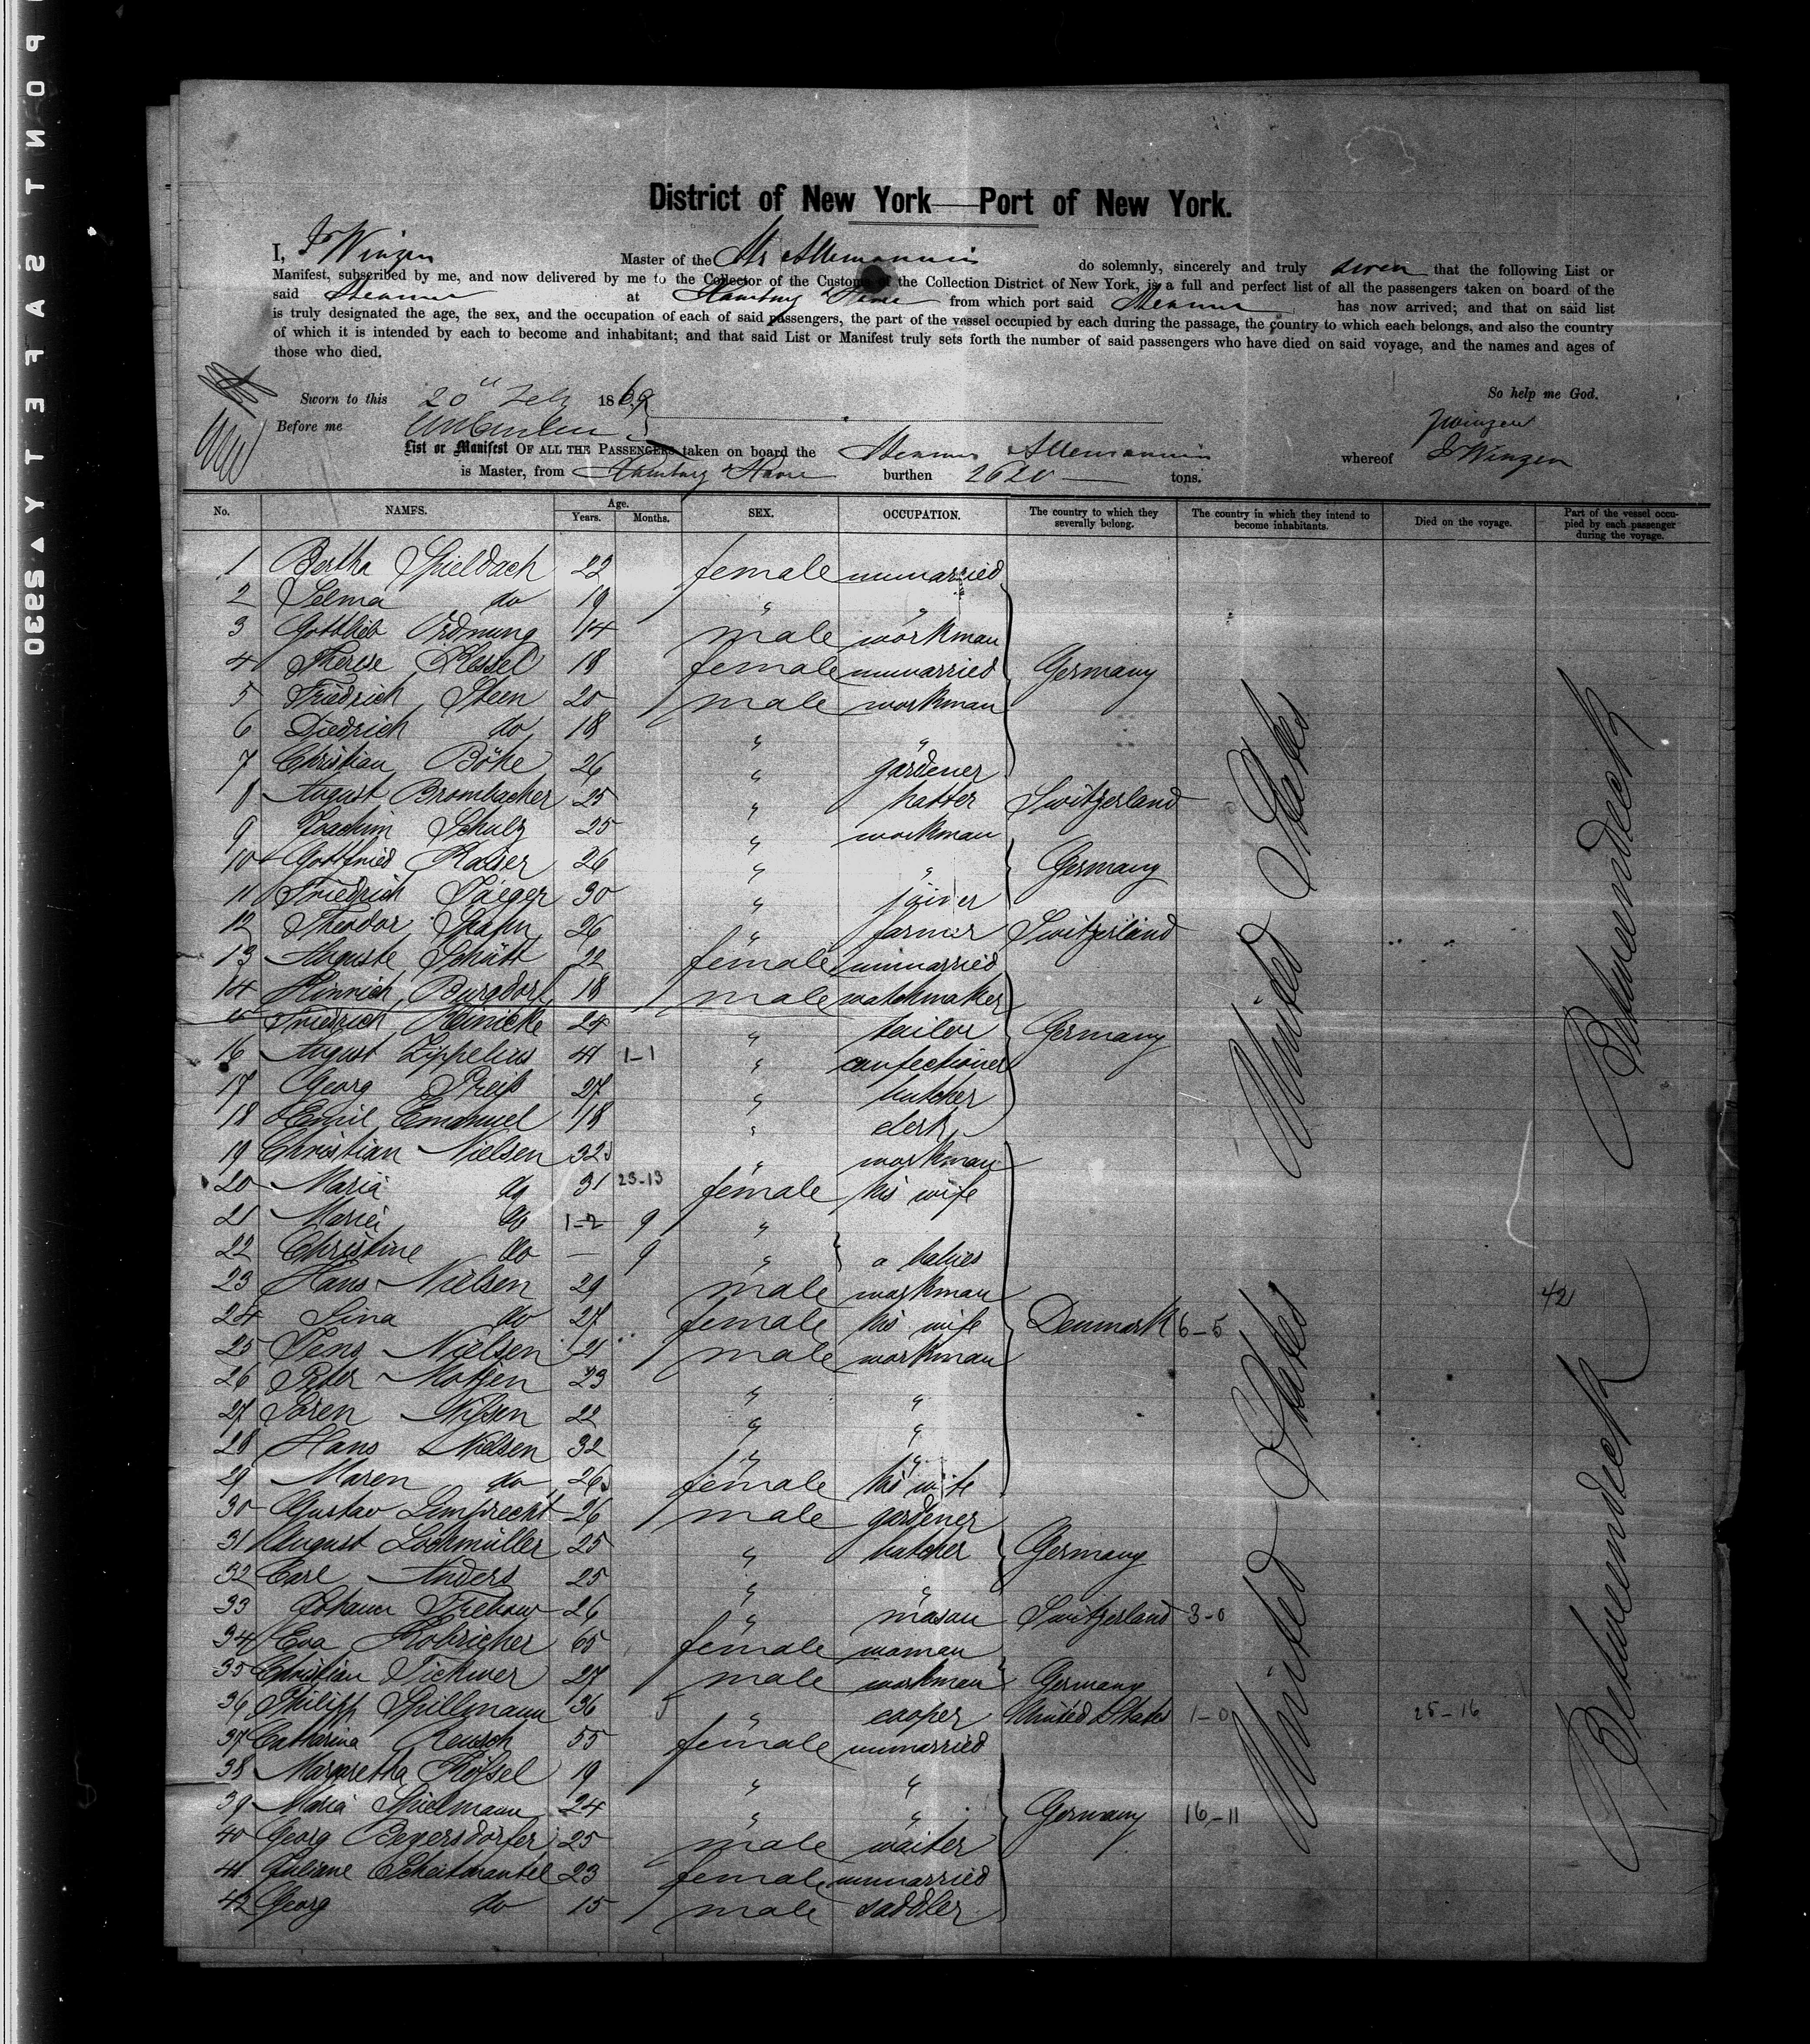 District of New York—Port of New York.
I, J Winzen Master of the Str Allemannia do solemnly, sincerely and truly swear that the following List or
Manifest, subscribed by me, and now delivered by me to the Collector of the Customs of the Collection District of New York, is a full and perfect list of all the passengers taken on board of the
said Steamer at Hamburg & Havre from which port said Steamer has now arrived; and that on said list
is truly designated the age, the sex, and the occupation of each of said passengers, the part of the vessel occupied by each during the passage, the country to which each belongs, and also the country
of which it is intended by each to become and inhabitant; and that said List or Manifest truly sets forth the number of said passengers who have died on said voyage, and the names and ages of
those who died.
So help me God.
Sworn to this 20th Feby 1869
Before me
JWinzen
List or Manifest OF ALL THE PASSENGERS taken on board the Steamer Allemannia whereof J Winzen
is Master, from Hamburg & Havre burthen 2620 tons.
No. NAMES. Age. Years. Months. SEX. OCCUPATION. The country to which they severally belong. The country in which they intend to become inhabitants. Died on the voyage. Part of the vessel occupied by each passenger during the voyage.
1 Bertha Spieldach 22 female unmarried
2 Selma do 19 " "
3 Gottlieb Ordnung 14 male workman
4 Therese Kessel 18 female unmarried Germany
5 Friedrich Steen 20 male workman
6 Diedrich do 18 " "
7 Christian Böhe 26 " gardener
8 August Brombacher 25 " hatter Switzerland
9 Joachim Schulz 25 " workman
10 Gottfried Kaiser 26 " " Germany
11 Friedrich Jaeger 30 " joiner
12 Theodor Spahn 26 " farmer Switzerland
13 Auguste Schütt 22 female unmarried
14 Hinrich Burgdorf 18 male watchmaker
Friedrich Reinicke 24 " tailor Germany
16 August Zippelius 41 1-1 " confectioner
17 Georg Preiß 27 " butcher
18 Emil Emanuel 18 " clerk
19 Christian Nielsen 32 " workman
20 Maria do 31 23-13 female his wife
21 Maria do 1-2 9 "
22 Christine do — 9 " babies
23 Hans Nielsen 29 male workman
24 Sina do 27 female his wife Denmark 6-5
25 Jens Nielsen 21 male workman
26 Peter Motzen 23 " "
27 Sören Nissen 22 " "
28 Hans Nielsen 32 " "
29 Maren do 26 female his wife
30 Gustav Lemprecht 26 male gardener
31 August Lochmüller 25 " butcher Germany
32 Carl Anders 25 " "
33 Johann Trebow 26 " mason Switzerland 3-0
34 Eva Kobricher 65 female woman
35 Christian Tickner 27 male workman Germany
36 Philipp Spillmann 36 " cooper United States 1-0 25-16
37 Catharina Reusch 55 female unmarried
38 Margaretha Kössel 19 " "
39 Maria Spielmann 24 " " Germany 16-11
40 Georg Beyersdorfer 25 male waiter
41 Juliane Scheitmantel 23 female unmarried
42 Georg do 15 male saddler
United States
United States
Betweendeck
42
Betweendeck
SAFETY▲